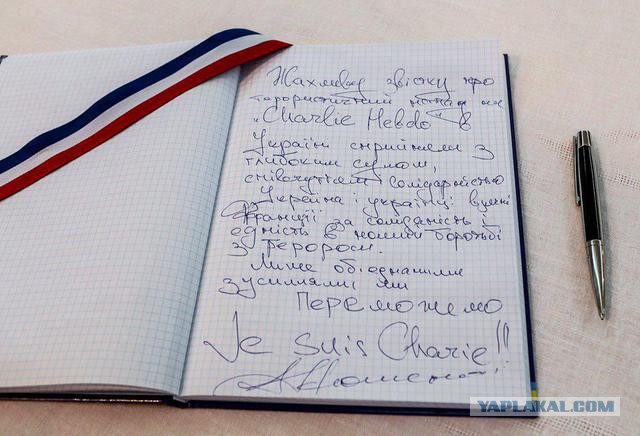 Жахливу звістку про
терористичний напад на
"Charlie Hebdo" в
Україні сприйняли з
глибоким сумом,
співчуттям і солідарністю
Україна і українці вдячні
Франції за солідарність і
єдність в нашій боротьбі
з терором.
Лише об'єднаними
зусиллями ми
переможемо
Je suis Charie!!!
YAPLAKAL.COM